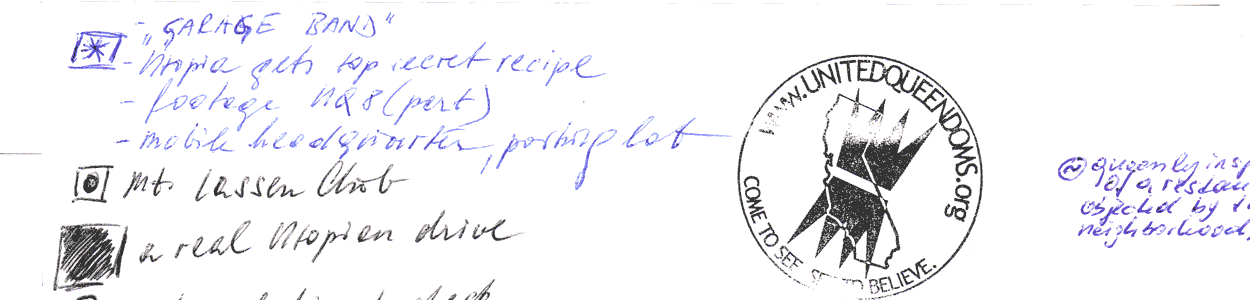 - "GARAGE BAND"
- Utopia gets top secret recipe
- footage UQ8 (part)
- mobile headquarter, parking lot
Mt. Lassen Club
a real Utopian drive
www.UNITEDQUEENDOMS.org
COME TO SEE. SEE TO BELIEVE.
queenly insp
of a restau
objected by t
neighborhood,